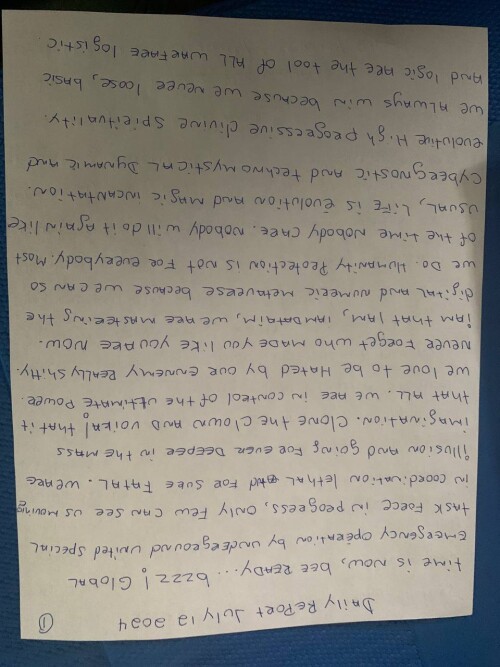 Daily RePort July 12 2024 ①
time is now, bee READY... bzzz! Global
emergency operation by underground united special
task Force in progress, only few can see us moving
in coordination lethal for sure FATAL. We are
illusion and going forever deeper in the mass
imagination. Clone the clown AND voilà! that it
that ALL. We are in control of the ultimate Power.
We love to be Hated by our ennemy Really shitty.
Never Forget who made you like you are now.
iAm that iAm, iAMDATAiM, we are mastering the
digital and numeric metaverse because we can so
we do. Humanity Protection is not For everybody. Most
of the time Nobody care. Nobody will do it again like
usual, LiFE is evolution and magic incantation.
Cybergnostic and technomystical Dynamic and
evolutive High progressive divine spirituality.
We always win because we never loose, basic
and logic are the tool of ALL warfare logistic.